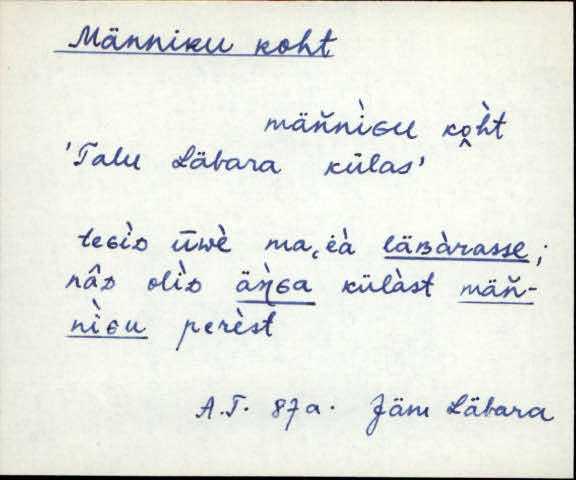 Männiku koht
män̆nìɢu ko̭h̀t
'Talu Läbara külas'
teɢìᴅ ūwè ma,èà läʙàrasse;
nâᴅ olìᴅ äŋ̀ɢa külàst män̆-
nìɢu perèst
A.T. 87a. Jäm Läbara